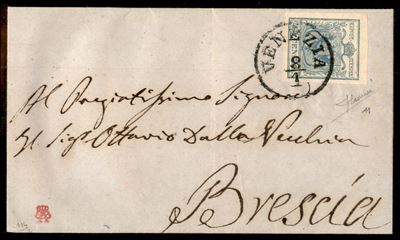 VENEZIA
8
1
Al Pregiatissimo Signore
Il Sigr Ottavio Dalla Vecchia
Brescia